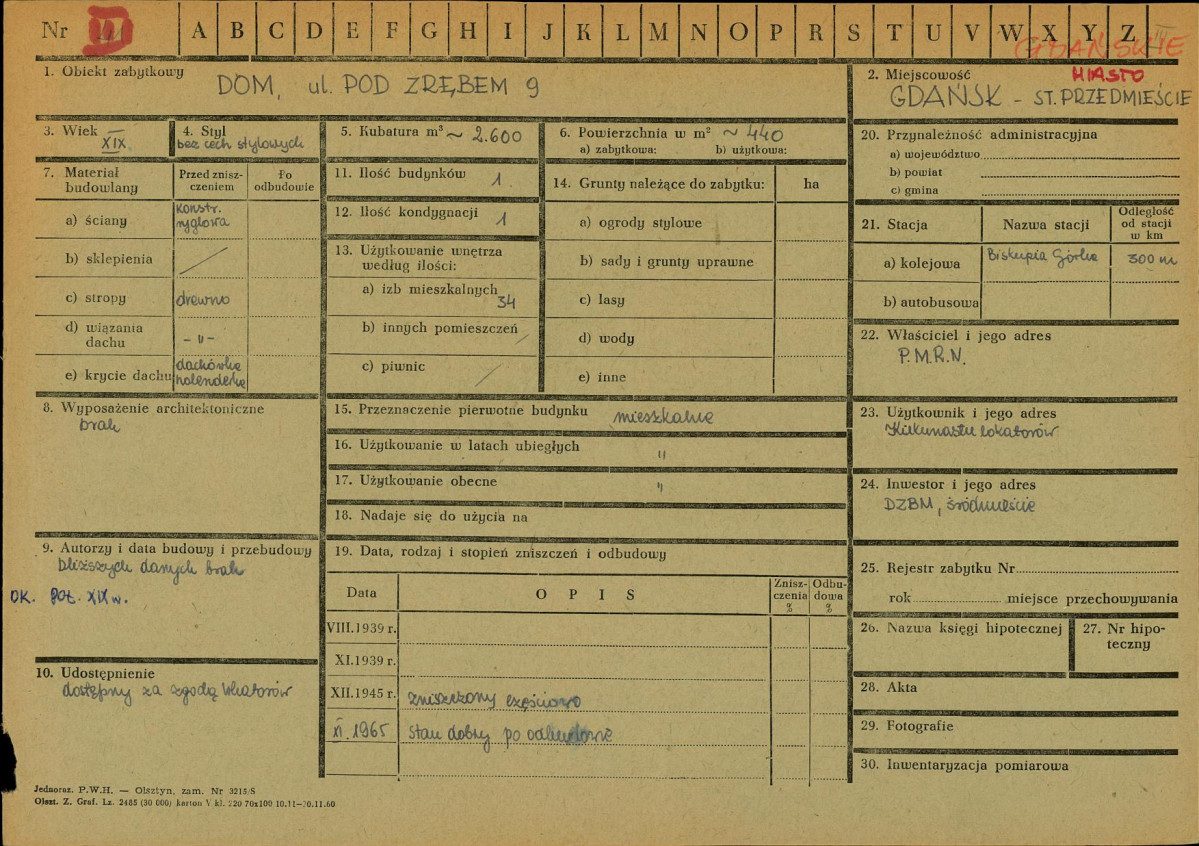 Nr
A B C D E F G H I J K L M N O P R S T U V W X Y Z
GDAŃSKIE
1. Obiekt zabytkowy
DOM, ul. POD ZRĘBEM 9
2. Miejscowość
MIASTO
GDAŃSK - ST. PRZEDMIEŚCIE
3. Wiek
XIX
4. Styl
bez cech stylowych
5. Kubatura m³ ~ 2.600
6. Powierzchnia w m² ~ 440
a) zabytkowa: b) użytkowa:
7. Materiał budowlany
Przed znisz-
czeniem
Po
odbudowie
a) ściany
konstr.
ryglowa
b) sklepienia
c) stropy drewno
d) wiązania
dachu - " -
e) krycie dachu
dachówka
holenderka
8. Wyposażenie architektoniczne
brak
9. Autorzy i data budowy i przebudowy
bliższych danych brak
OK. POŁ. XIX w.
10. Udostępnienie
dostępny za zgodą lokatorów
11. Ilość budynków 1
12. Ilość kondygnacji 1
13. Użytkowanie wnętrza
według ilości:
a) izb mieszkalnych
34
b) innych pomieszczeń
c) piwnic
14. Grunty należące do zabytku: ha
a) ogrody stylowe
b) sady i grunty uprawne
c) lasy
d) wody
e) inne
15. Przeznaczenie pierwotne budynku mieszkalne
16. Użytkowanie w latach ubiegłych "
17. Użytkowanie obecne "
18. Nadaje się do użycia na
19. Data, rodzaj i stopień zniszczeń i odbudowy
Data
OPIS
Znisz-
czenia
%
Odbu-
dowa
%
VIII.1939 r.
XI.1939 r.
XII.1945 r. zniszczony częściowo
XI.1965 stan dobry po odbudowie
20. Przynależność administracyjna
a) województwo
b) powiat
c) gmina
21. Stacja
Nazwa stacji
Odległość
od stacji
w km
a) kolejowa Biskupia Górka 300 m
b) autobusowa
22. Właściciel i jego adres
P.M.R.N.
23. Użytkownik i jego adres
Kilkunastu lokatorów
24. Inwestor i jego adres
DZBM, śródmieście
25. Rejestr zabytku Nr
rok miejsce przechowywania
26. Nazwa księgi hipotecznej
27. Nr hipo-
teczny
28. Akta
29. Fotografie
30. Inwentaryzacja pomiarowa
Jednoraz. P.W.H. — Olsztyn, zam. Nr 3215/S
Olszt. Z. Graf. Lz. 2485 (30 000) karton V kl. 220 70x100 10.11—30.11.60